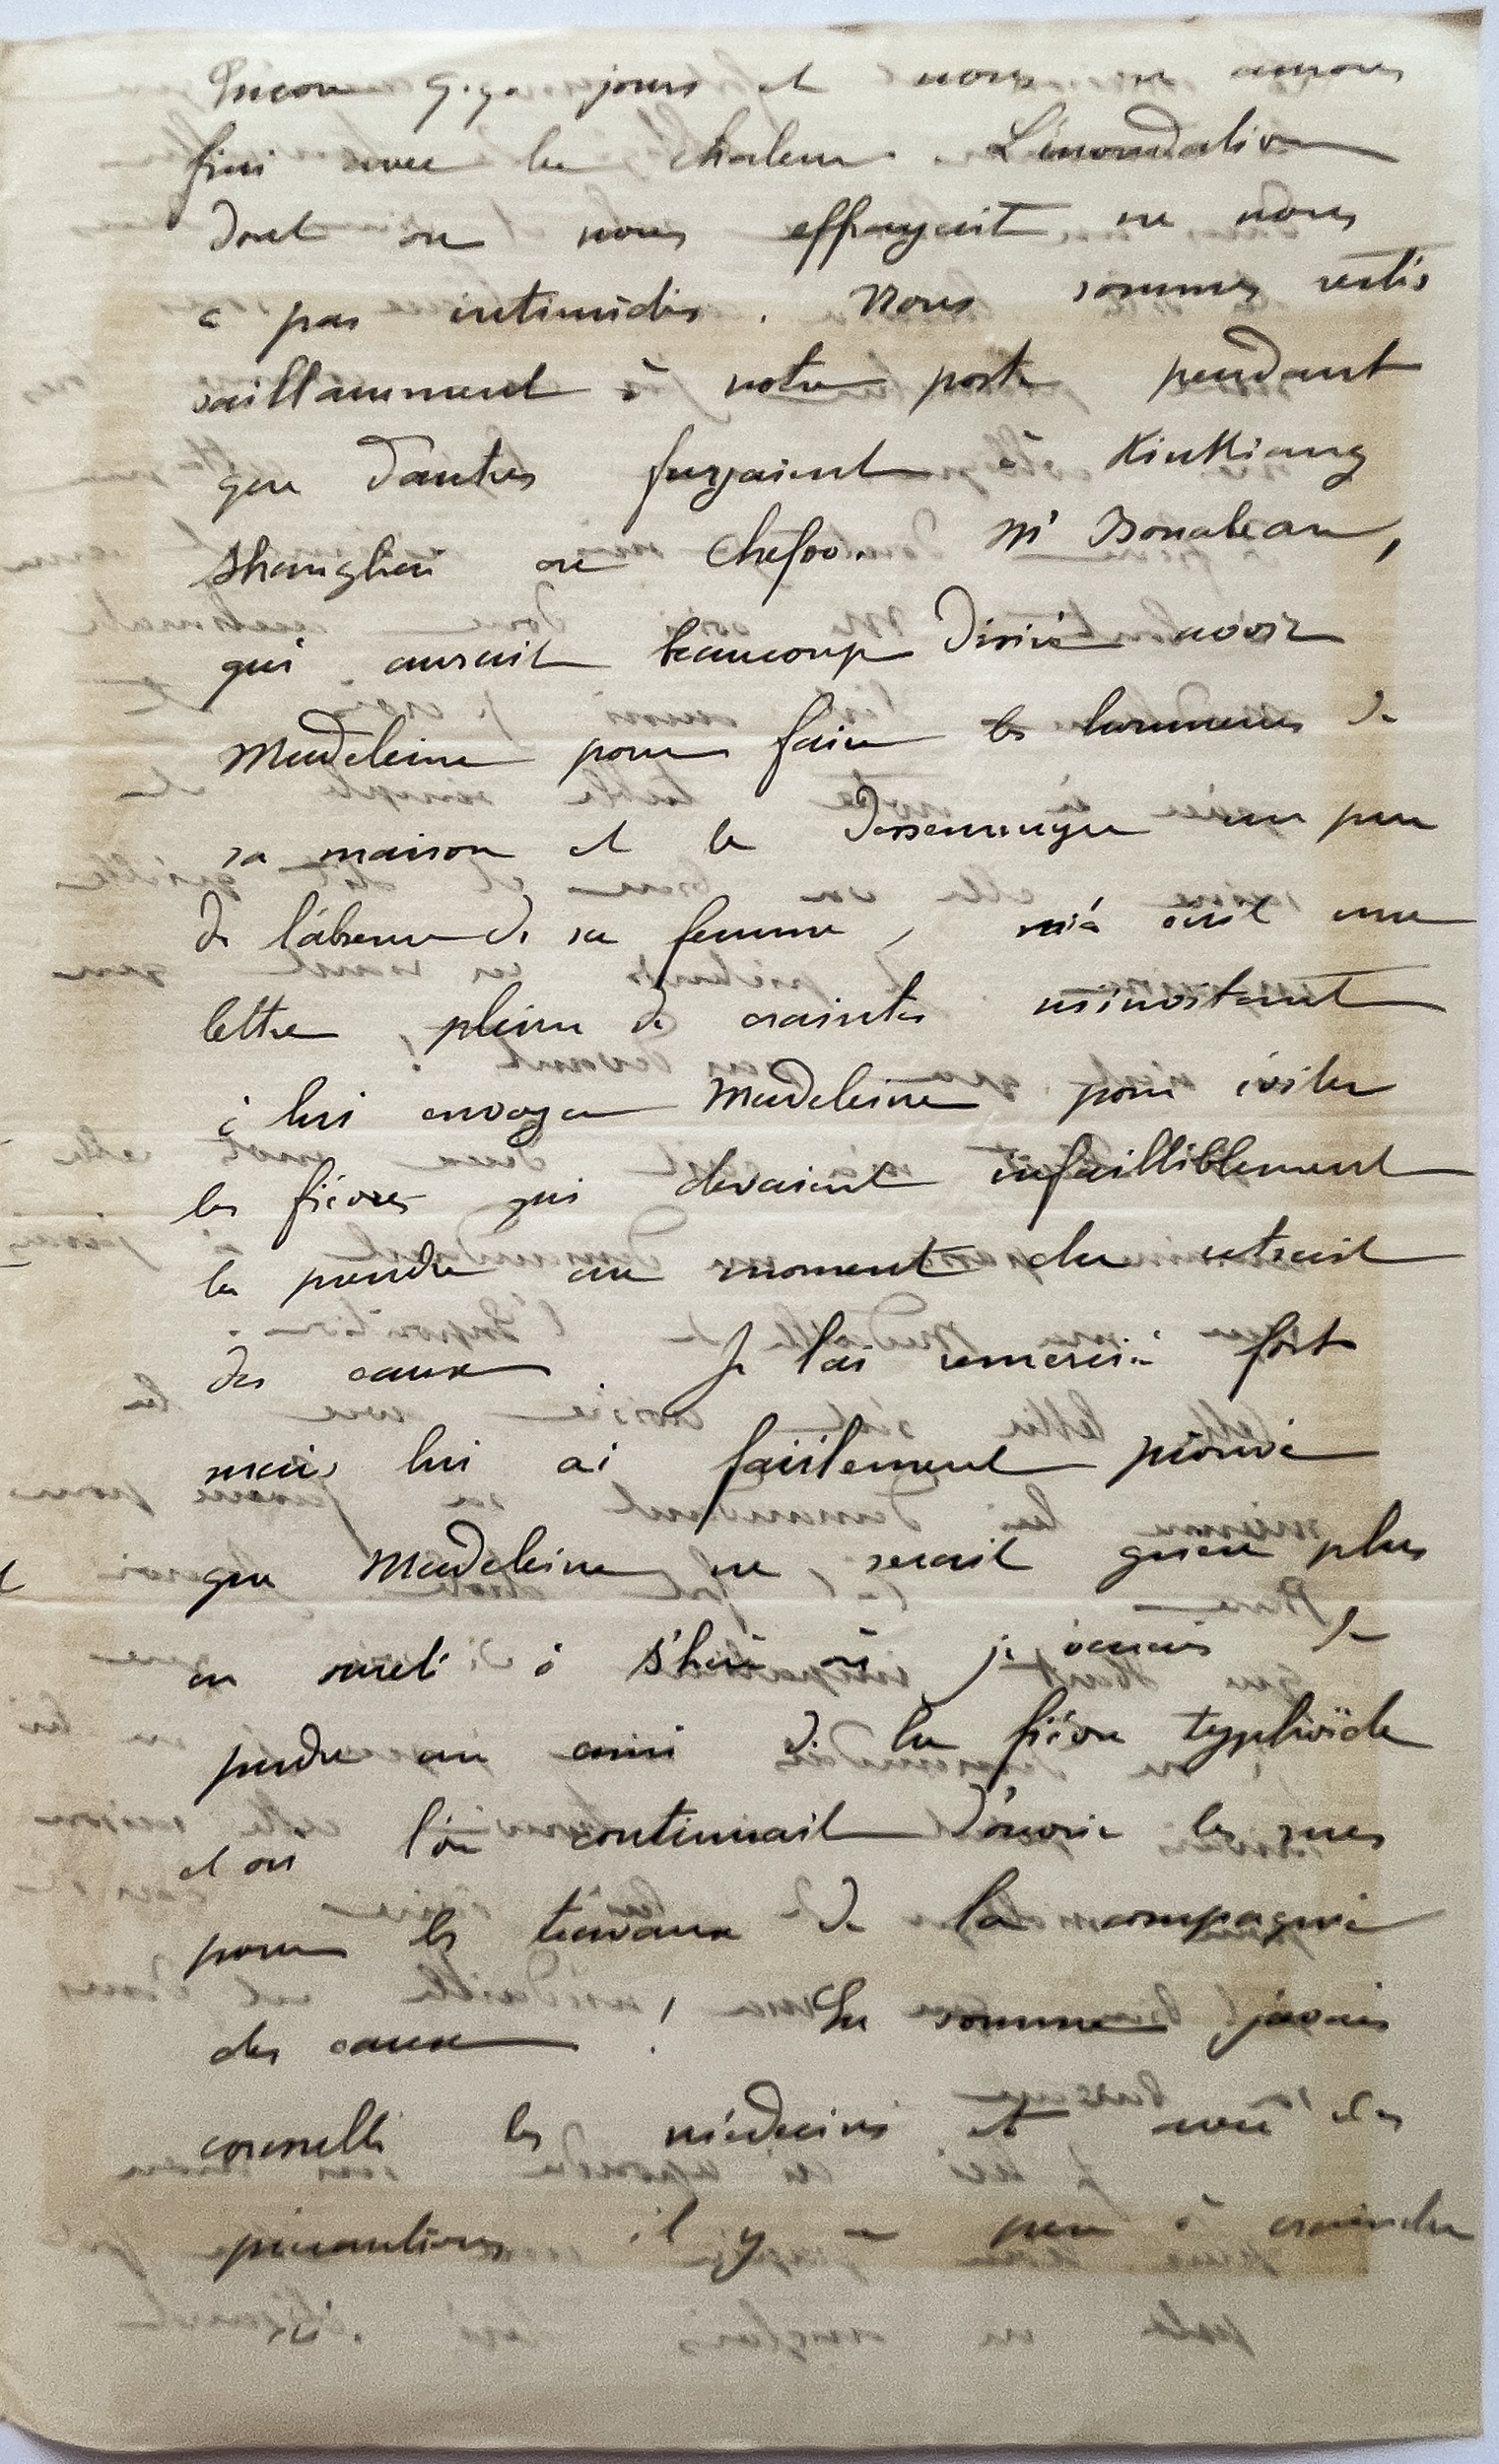 Encore q.q. jours et nous en aurons
fini avec les chaleurs. L'inondation
dont on nous effrayait ne nous
a pas intimidés. Nous sommes restés
vaillamment à notre poste pendant
que d'autres fuyaient à KiuKiang
Shanghai ou Chefoo. Mr
qui aurait beaucoup désiré avoir
Madeleine pour faire les honneurs de
sa maison et le un peu
de l'absence de sa femme, m'a écrit une
lettre pleine de craintes m'invitant
à lui envoyer Madeleine pour éviter
les fièvres qui devaient infailliblement
la prendre au moment du retrait
des eaux. Je l'ai remercié fort
mais lui ai facilement prouvé
que Madeleine ne serait guère plus
en sureté à S'hai où je venais de
perdre un ami de la fièvre typhoïde
et où l'on continuait d'ouvrir les rues
pour les travaux de la compagnie
des eaux ! En somme j'avais
consulté les médecins et avec des
précautions il y a peu à craindre